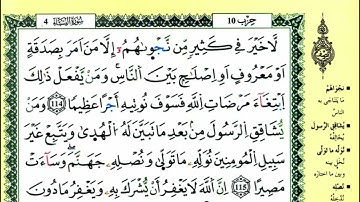 حزب 10
سُورَةُ النِّسَاءِ 4
لَّا خَيْرَ فِي كَثِيرٍ مِّن نَّجْوَىٰهُمْ إِلَّا مَنْ أَمَرَ بِصَدَقَةٍ
أَوْ مَعْرُوفٍ أَوْ إِصْلَٰحٍۢ بَيْنَ ٱلنَّاسِ وَمَن يَفْعَلْ ذَٰلِكَ
ٱبْتِغَآءَ مَرْضَاتِ ٱللَّهِ فَسَوْفَ نُوتِيهِ أَجْرًا عَظِيمًا 114 وَمَنْ
يُّشَاقِقِ ٱلرَّسُولَ مِنۢ بَعْدِ مَا تَبَيَّنَ لَهُ ٱلْهُدَىٰ وَيَتَّبِعْ غَيْرَ
سَبِيلِ ٱلْمُومِنِينَ نُوَلِّهِۦ مَا تَوَلَّىٰ وَنُصْلِهِۦ جَهَنَّمَ وَسَآءَتْ
مَصِيرًا 115 إِنَّ ٱللَّهَ لَا يَغْفِرُ أَنْ يُّشْرَكَ بِهِۦ وَيَغْفِرُ مَا دُونَ
نَجْوَاهُمْ
مَا يَتَنَاجَى بِهِ
النَّاسُ
يُشَاقِقِ الرَّسُولَ
يُخَالِفْهُ
نُوَلِّهِ مَا تَوَلَّى
نُخَلِّ بَيْنَهُ
وَبَيْنَ مَا اخْتَارَهُ
نُصْلِهِ
نُدْخِلْهُ